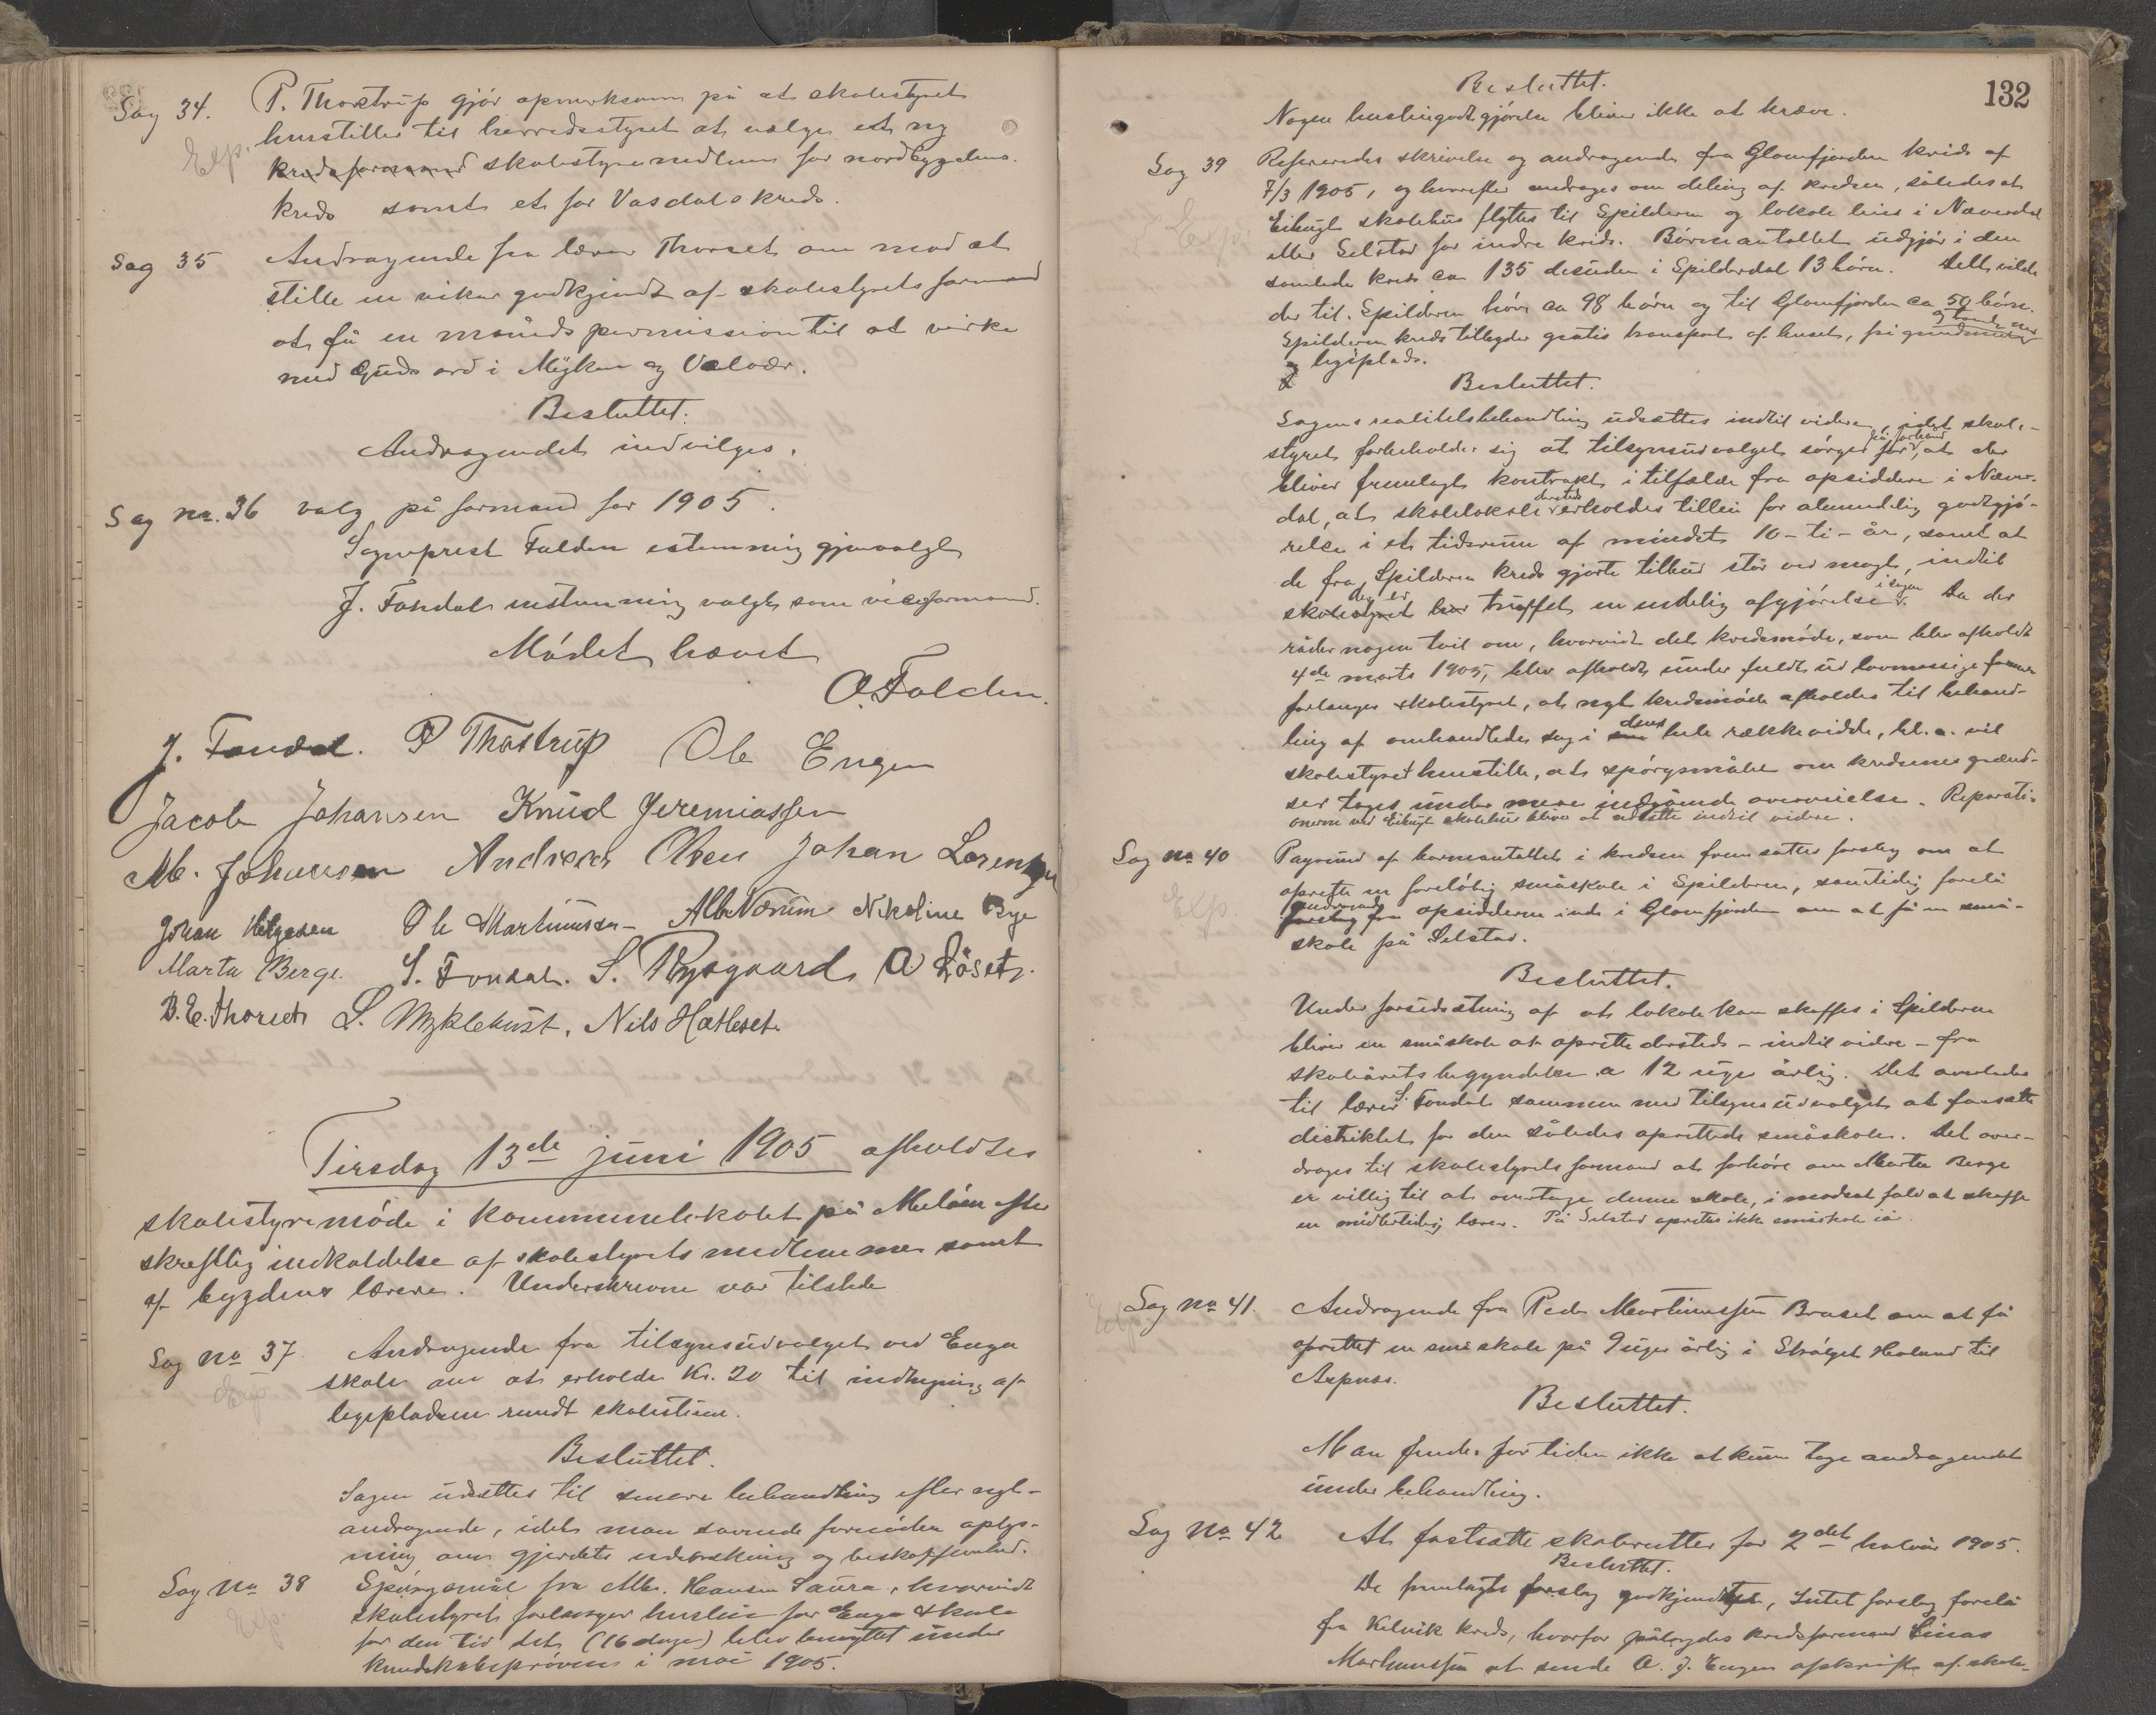 Sag 34. P. Thostrup gjör opmerksom på at skolestyret
Exp. henstiller til herredsstyret at velge et ny
kredsformand skolestyremedlem for nordbygdens
kreds samt et for Vasdals kreds.
Sag 35 Andragende fra lærer Thorset om mod at
stille en vikar godkjendt af skolestyrets formand
at få en måneds permission til at virke
med Guds ord i Myken og Valvær.
Besluttet.
Andragendet indvilges.
Sag no. 36 valg på formand for 1905.
Sogneprest Falden enstemmig gjenvalgt
J. Fondal enstemmig valgt som viceformand.
Mödet hævet
O. Folden.
J. Fondal. P Thostrup Ole Engen
Jacob Johansen Knud Jeremiassen
M. Johansen Andreas Olsen Johan Lorentzen
Johan Helgesen Ole Martinussen Alb. Nærum Nikoline Bye
Marta Berge. S. Fondal. S. Rysgaard O Röset.
B. E. Thorset S. Myklebust. Nils Hatleset.
Tirsdag 13de juni 1905 afholdtes
skolestyremöde i kommunelokalet på Melöen efter
skreftlig indkaldelse af skolestyrets medlemmer samt
af bygdens lærere. Underskrevne var tilstede
Sag no 37. Andragende fra tilsynsudvalget ved Enga
Exp skole om at erholde Kr. 20 til indhegning af
legepladsen rundt skolestuen.
Besluttet.
Sagen udsættes til senere behandling efter nyt
andragende, idet man savnede fornöden oplys-
ning om gjerdets udstrækning og beskaffenhed.
Sag no 38 Spörgsmål fra Mb. Hansen Saura, hvorvidt
Exp. skolestyret forlanger husleie for Enga skole
for den tid det (16 dage) blev benyttet under
kundskabsprövene i mai 1905.
132
Besluttet.
Nogen husleiegodtgjörelse bliver ikke at kræve.
Sag 39 Refereredes skrivelse og andragende fra Glomfjorden kreds af
7/3 1905, og hvorefter andrages om deling af kredsen, således at
Exp. Eibugt skolehus flyttes til Spilderen og lokale leies i Næverdal
eller Selstad for indre kreds. Börneantallet udgjör i den
samlede kreds ca 135 desuden i Spilderdal 13 börn. Delt vilde
der til Spilderen höre ca 98 börn og til Glomfjorden ca 50 börn.
Spilderen kreds tilbyder gratis transport af huset, fri grundmur
og legeplads.
Besluttet.
Sagens realitetsbehandling udsættes indtil videre, idet skole-
styret forbeholder sig at tilsynsudvalget sörger for på forhånd, at der
bliver fremlagt kontrakt i tilfælde fra opsiddere i Næver-
dal, at skolelokale dersteds erholdes tilleie for almindelig godtgjö-
relse i et tidsrum af mindst 10 - ti - år, samt at
de fra Spilderen kreds gjorte tilbud står ved magt, indtil
skolestyret har der er truffet en endelig afgjörelse i sagen. Da der
råder nogen tvil om, hvorvidt det kredsmöde, som blev afholdt
4de marts 1905, blev afholdt under fuldt ud lovmæssige former
forlanger skolestyret, at nyt kredsmöde afholdes til behand-
ling af omhandlede sag i dens hele rækkevidde, bl. a. vil
skolestyret henstille, at spörgsmålet om kredsenes grænd-
ser tages under mere indgående overveielse. Reparati-
onerne ved Eibugt skolehus bliver at udsætte indtil videre.
Sag no 40 Pagrund af barneantallet i kredsen fremsattes forslag om at
Exp. oprette en foreløbig småskole i Spilderen, samtidig forelå
forslag andragende fra opsidderne inde i Glomfjorden om at få en små-
skole på Selstad.
Besluttet.
Under forudsætning af at lokale kan skaffes i Spilderen
bliver en småskole at oprette dersteds - indtil videre - fra
skoleårets begyndelse a 12 uger årlig. Det overlades
til lærer S. Fondal sammen med tilsynsudvalget at fastsætte
distriktet for den således oprettede småskole. Det over-
drages til skolestyrets formand at forhöre om Marta Berge
er villig til at overtage denne skole, i modsat fald at skaffe
en midlertidig lærer. På Selstad oprettes ikke småskole iår.
Sag no 41. Andragende fra Peder Martinussen Braset om at få
Exp. oprettet en småskole på 9 uger årlig i Ströget Haland til
Aspnes.
Besluttet.
Man finder for tiden ikke at kunne tage andragendet
under behandling.
Sag no 42 At fastsætte skoleruter for 2det halvår 1905.
Besluttet.
De fremlagte forslag godkjendtes, Intet forslag forelå
fra Kilvik kreds, hvorfor pålagdes kredsformand Linas
Martinussen at sende O. J. Engen afskrift af skole-